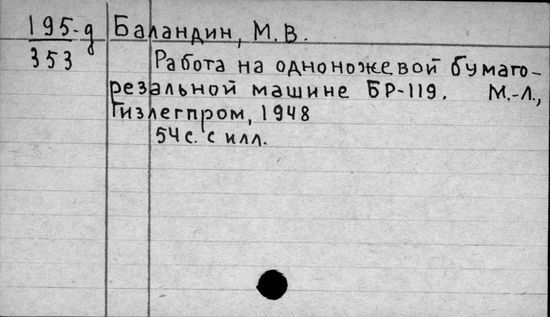 195-д
353
Баландин, М.В.
Работа на одноножевой бумаго-
резальной машине БР-119. М.-Л.,
Гизлегпром, 1948
54 с. с илл.